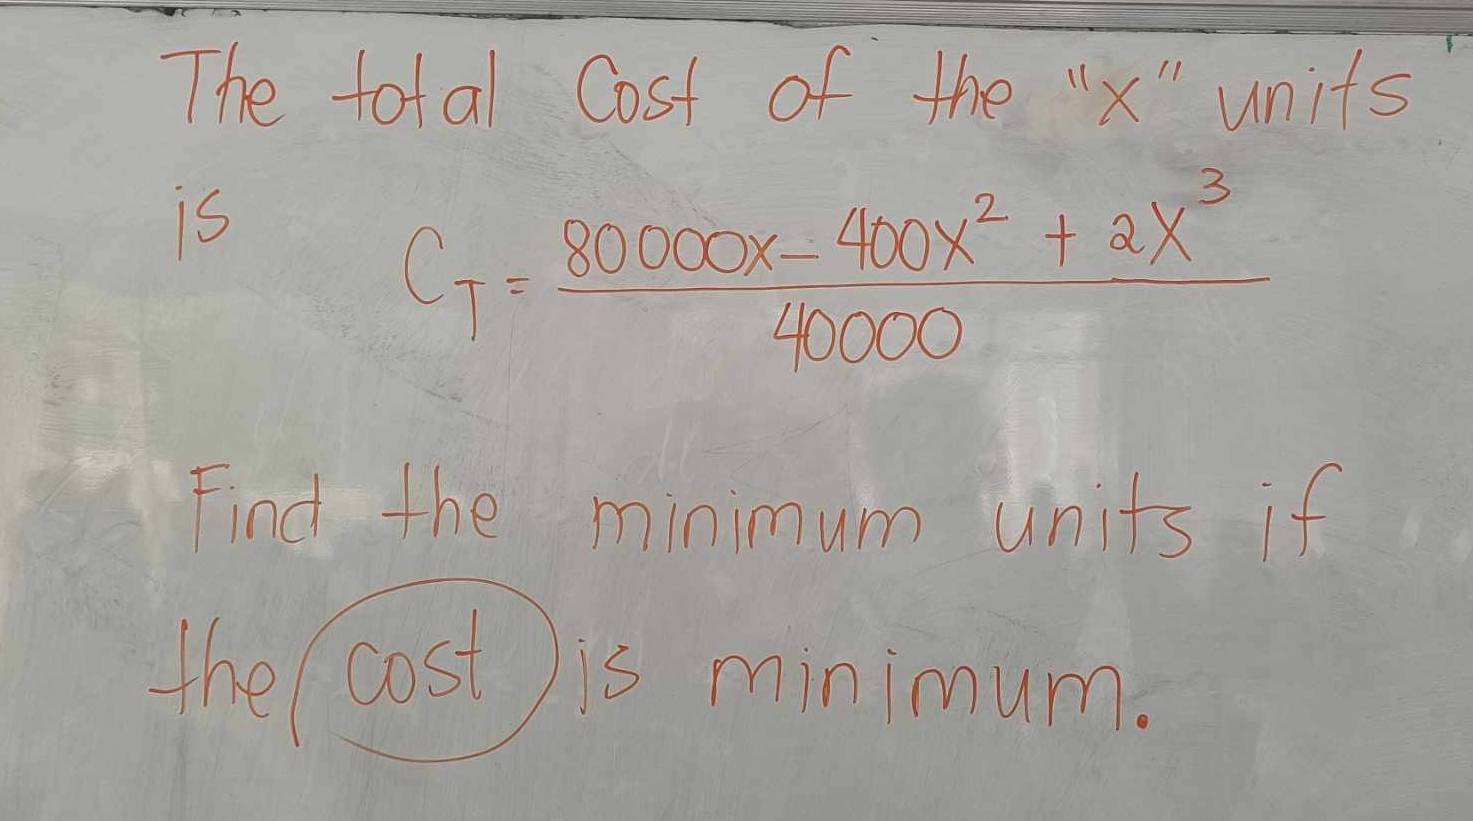 The total Cost of the "x" units
is C_T = (80000x - 400x² + 2x³) / 40000
Find the minimum units if
the cost is minimum.